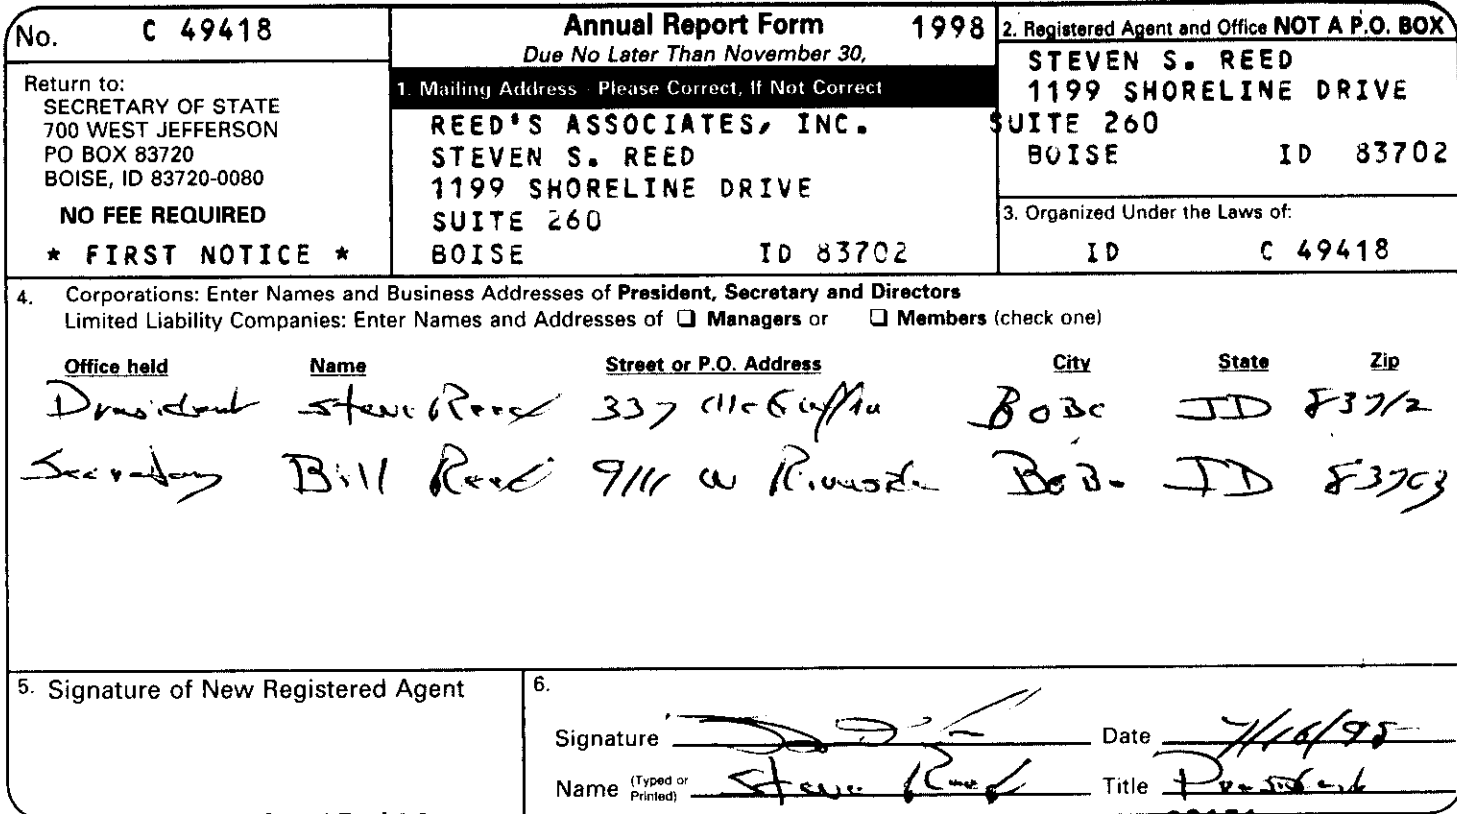 No. C 49418
Return to:
SECRETARY OF STATE
700 WEST JEFFERSON
PO BOX 83720
BOISE, ID 83720-0080
NO FEE REQUIRED
* FIRST NOTICE *
Annual Report Form 1998
Due No Later Than November 30,
1. Mailing Address - Please Correct, If Not Correct
REED'S ASSOCIATES, INC.
STEVEN S. REED
1199 SHORELINE DRIVE
SUITE 260
BOISE ID 83702
2. Registered Agent and Office NOT A P.O. BOX
STEVEN S. REED
1199 SHORELINE DRIVE
SUITE 260
BOISE ID 83702
3. Organized Under the Laws of:
ID C 49418
4. Corporations: Enter Names and Business Addresses of President, Secretary and Directors
Limited Liability Companies: Enter Names and Addresses of ❏ Managers or ❏ Members (check one)
Office held Name Street or P.O. Address City State Zip
President Steve Reed 337 Boise ID 83712
Secretary Bill Reed 9111 W Riverside Boise ID 83703
5. Signature of New Registered Agent
6.
Signature Date 7/16/98
Name (Typed or Printed) Steve Reed Title President